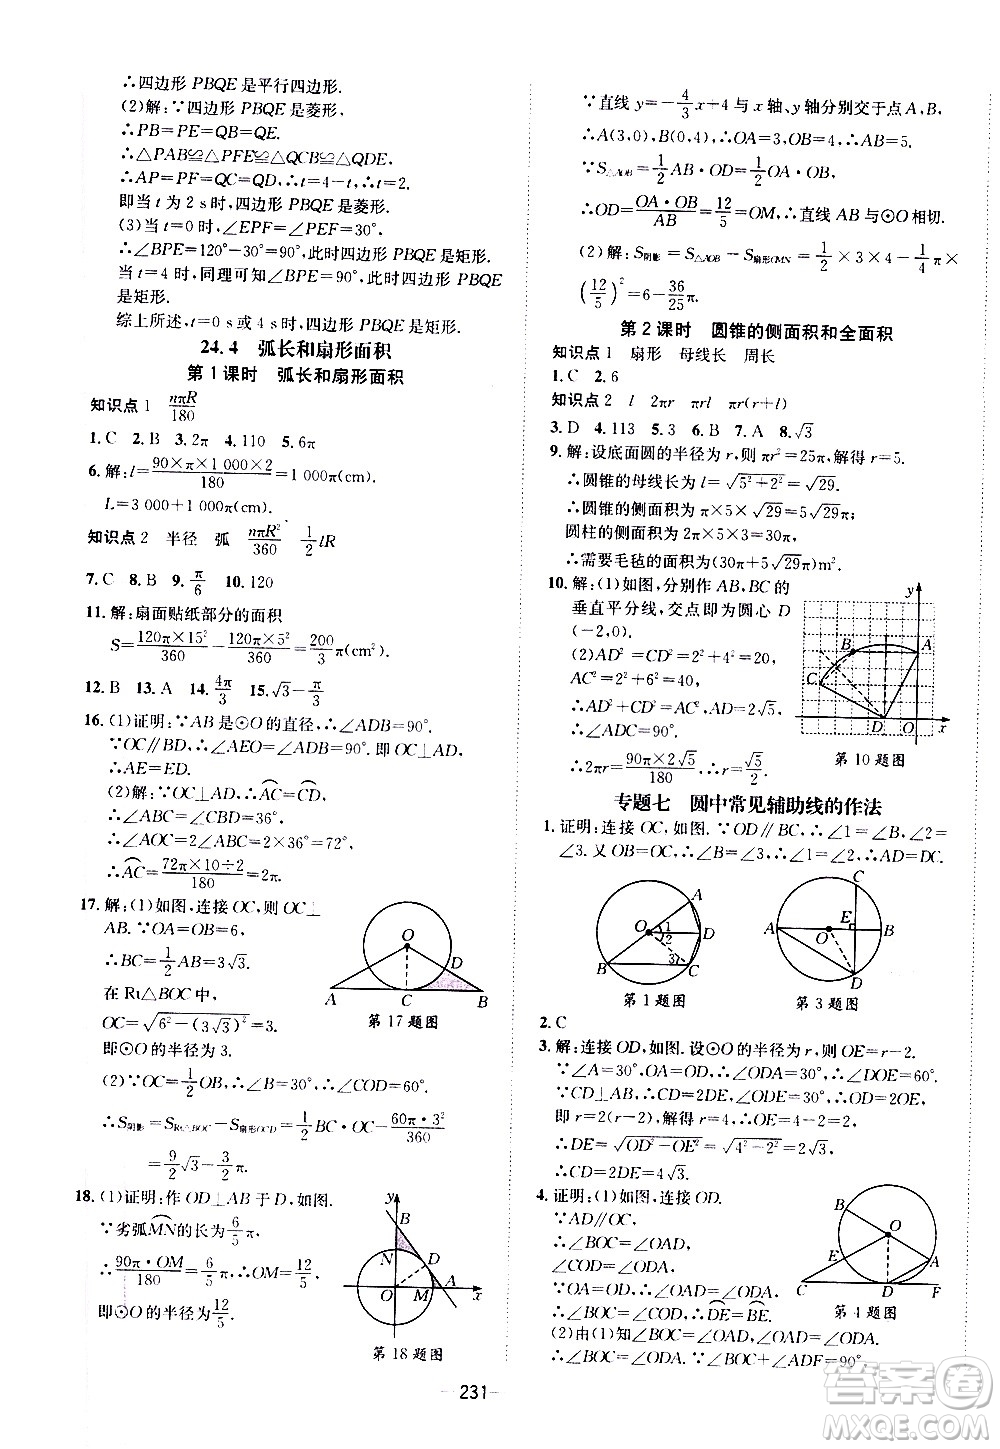 ∴四边形 PBQE 是平行四边形.
(2)解:∵四边形 PBQE 是菱形,
∴PB=PE=QB=QE.
∴△PAB≌△PFE≌△QCB≌△QDE.
∴AP=PF=QC=QD,∴t=4-t,∴t=2.
即当 t 为 2 s时,四边形 PBQE 是菱形.
(3)当 t=0 时,∠EPF=∠PEF=30°,
∴∠BPE=120°-30°=90°,此时四边形 PBQE 是矩形.
当 t=4 时,同理可知∠BPE=90°,此时四边形 PBQE
是矩形.
综上所述,t=0 s或 4 s时,四边形 PBQE 是矩形.
24.4 弧长和扇形面积
第 1 课时 弧长和扇形面积
知识点 1 nπR/180
1.C 2.B 3.2π 4.110 5.6π
6.解:l=90×π×1 000×2/180=1 000π(cm).
L=3 000+1 000π(cm).
知识点 2 半径 弧 nπR²/360 1/2 lR
7.C 8.B 9.π/6 10.120
11.解:扇面贴纸部分的面积
S=120π×15²/360-120π×5²/360=200/3 π(cm²).
12.B 13.A 14.4π/3 15.√3-π/3
16.(1)证明:∵AB是⊙O的直径,∴∠ADB=90°.
∵OC∥BD,∴∠AEO=∠ADB=90°.即 OC⊥AD,
∴AE=ED.
(2)解:∵OC⊥AD,∴⌒AC=⌒CD,
∴∠ABC=∠CBD=36°,
∴∠AOC=2∠ABC=2×36°=72°,
∴⌒AC=72π×10÷2/180=2π.
17.解:(1)如图,连接OC,则 OC⊥
AB.∵OA=OB=6,
∴BC=1/2 AB=3√3.
在 Rt△BOC 中,
OC=√6²-(3√3)²=3.
即⊙O 的半径为 3.
(2)∵OC=1/2 OB,∴∠B=30°,∴∠COD=60°,
∴S阴影=S Rt△BOC-S扇形OCD=1/2 BC·OC-60π·3²/360
=9/2 √3-3/2 π.
O
D
A
C
B
第 17 题图
18.(1)证明:作 OD⊥AB 于 D,如图.
∵劣弧⌒MN的长为6/5 π,
∴90π·OM/180=6/5 π,∴OM=12/5,
即⊙O 的半径为12/5.
y
B
N
D
O
M
A
x
第 18 题图
∵直线 y=-4/3 x+4 与 x 轴、y 轴分别交于点 A,B,
∴A(3,0),B(0,4),∴OA=3,OB=4,∴AB=5.
∵S△AOB=1/2 AB·OD=1/2 OA·OB,
∴OD=OA·OB/AB=12/5=OM,∴直线 AB 与⊙O 相切.
(2)解:S阴影=S△AOB-S扇形OMN=1/2×3×4-1/4 π×
(12/5)²=6-36/25 π.
第 2 课时 圆锥的侧面积和全面积
知识点 1 扇形 母线长 周长
1.C 2.6
知识点 2 l 2πr πrl πr(r+l)
3.D 4.113 5.3 6.B 7.A 8.√3
9.解:设底面圆的半径为 r,则 πr²=25π,解得 r=5.
∴圆锥的母线长为 l=√5²+2²=√29.
∴圆锥的侧面积为 π×5×√29=5√29π;
圆柱的侧面积为 2π×5×3=30π,
∴需要毛毡的面积为(30π+5√29π)m².
10.解:(1)如图,分别作 AB,BC 的
垂直平分线,交点即为圆心 D
(-2,0).
(2)AD²=CD²=2²+4²=20,
AC²=6²+2²=40,
∴AD²+CD²=AC²,AD=2√5,
∴∠ADC=90°.
∴2πr=90π×2√5/180,∴r=√5/2.
y
B
A
C
D
O
x
第 10 题图
专题七 圆中常见辅助线的作法
1.证明:连接 OC,如图.∵OD∥BC,∴∠1=∠B,∠2=
∠3.又 OB=OC,∴∠B=∠3,∴∠1=∠2,∴AD=DC.
A
O
1
2
D
3
B
C
第 1 题图
C
E
A
O
B
D
第 3 题图
2.C
3.解:连接 OD,如图.设⊙O的半径为 r,则 OE=r-2.
∵∠A=30°,∴∠DOE=60°.
∵CD⊥AB,∴CD=2DE,∠ODE=30°,∴OD=2OE,
即 r=2(r-2),∴r=4,∴OE=4-2=2,
∴DE=√OD²-OE²=√4²-2²=2√3,
∴CD=2DE=4√3.
4.证明:(1)如图,连接 OD.
∵AD∥OC,
∴∠BOC=∠OAD,
∠COD=∠ODA,
∵OA=OD,∴∠OAD=∠ODA.
∴∠BOC=∠COD,∴⌒DE=⌒BE;
(2)由(1)知∠BOC=∠OAD,∠OAD=∠ODA,
∴∠BOC=∠ODA.∵∠BOC+∠ADF=90°,
B
O
E
A
C
D
F
第 4 题图
231
答案圈
MXQE.COM